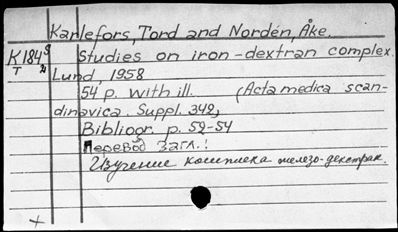 Karlefors, Tord and Nordén, Åke.
K184 S Studies on iron-dextran complex
T 21 Lund, 1958
54 p. with ill. (Acta medica scan-
dinavica. Suppl. 342,
Bibliogr. p. 52-54
Перевод загл.:
Изучение комплека железо-декстран.
+